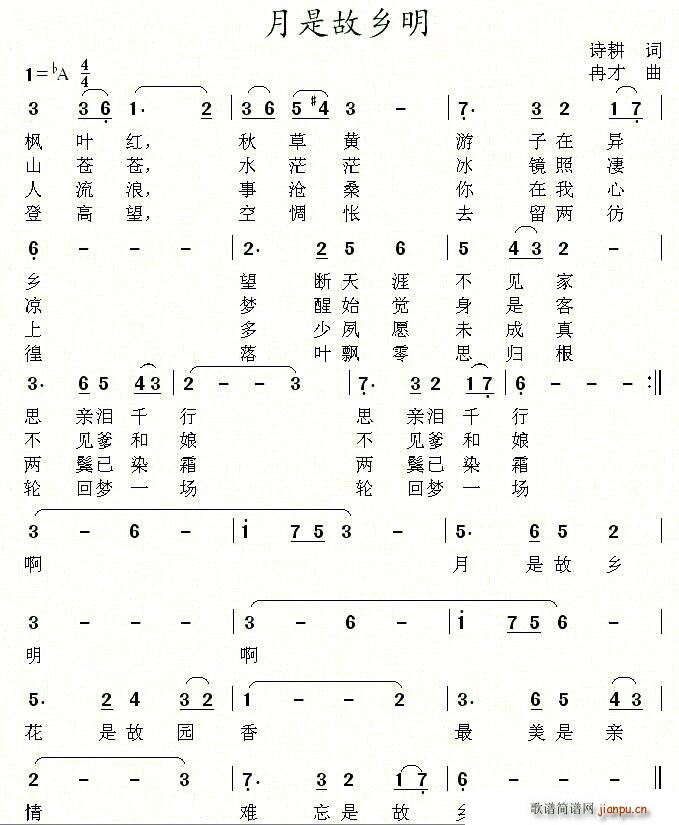 月是故乡明
诗耕 词
1=♭A 4/4 冉才 曲
3 3 6 1· 2 | 3 6 5 #4 3 – | 7· 3 2 1 7 |
枫 叶 红, 秋 草 黄 游 子 在 异
山 苍 苍, 水 茫 茫 冰 镜 照 凄
人 流 浪, 事 沧 桑 你 在 我 心
登 高 望, 空 惆 怅 去 留 两 彷
6 – – – | 2· 2 5 6 | 5 4 3 2 – |
乡 望 断 天 涯 不 见 家
凉 梦 醒 始 觉 身 是 客
上 多 少 夙 愿 未 成 真
徨 落 叶 飘 零 思 归 根
3· 6 5 4 3 | 2 – – 3 | 7· 3 2 1 7 | 6 – – – :‖
思 亲 泪 千 行 思 亲 泪 千 行
不 见 爹 和 娘 不 见 爹 和 娘
两 鬓 已 染 霜 两 鬓 已 染 霜
轮 回 梦 一 场 轮 回 梦 一 场
3 – 6 – | i – 7 5 3 | 5· 6 5 2 |
啊 月 是 故 乡
3 – – – | 3 – 6 – | i – 7 5 6 – |
明 啊
5· 2 4 3 2 | 1 – – 2 | 3· 6 5 4 3 |
花 是 故 园 香 最 美 是 亲
2 – – 3 | 7· 3 2 1 7 | 6 – – – ‖
情 难 忘 是 故 乡
歌谱简谱网 jianpu.cn